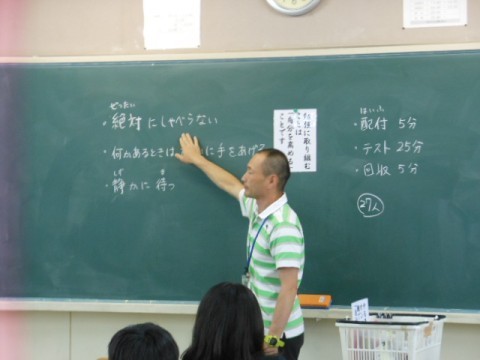 ぜったい
・絶対にしゃべらない
・何かあるときは に手をあげる
しず ま
・静かに待つ
仕事に取り組む
ことは
自分を高める
ことです
はいふ
・配付 5分
・テスト 25分
・回収 5分
27人